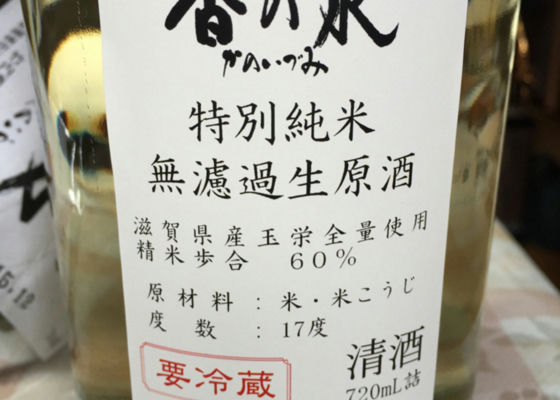 香の泉
かのいづみ
特別純米
無濾過生原酒
滋賀県産玉栄全量使用
精米歩合 60%
原材料：米・米こうじ
度数：17度
要冷蔵
清酒
720mL詰
15.12